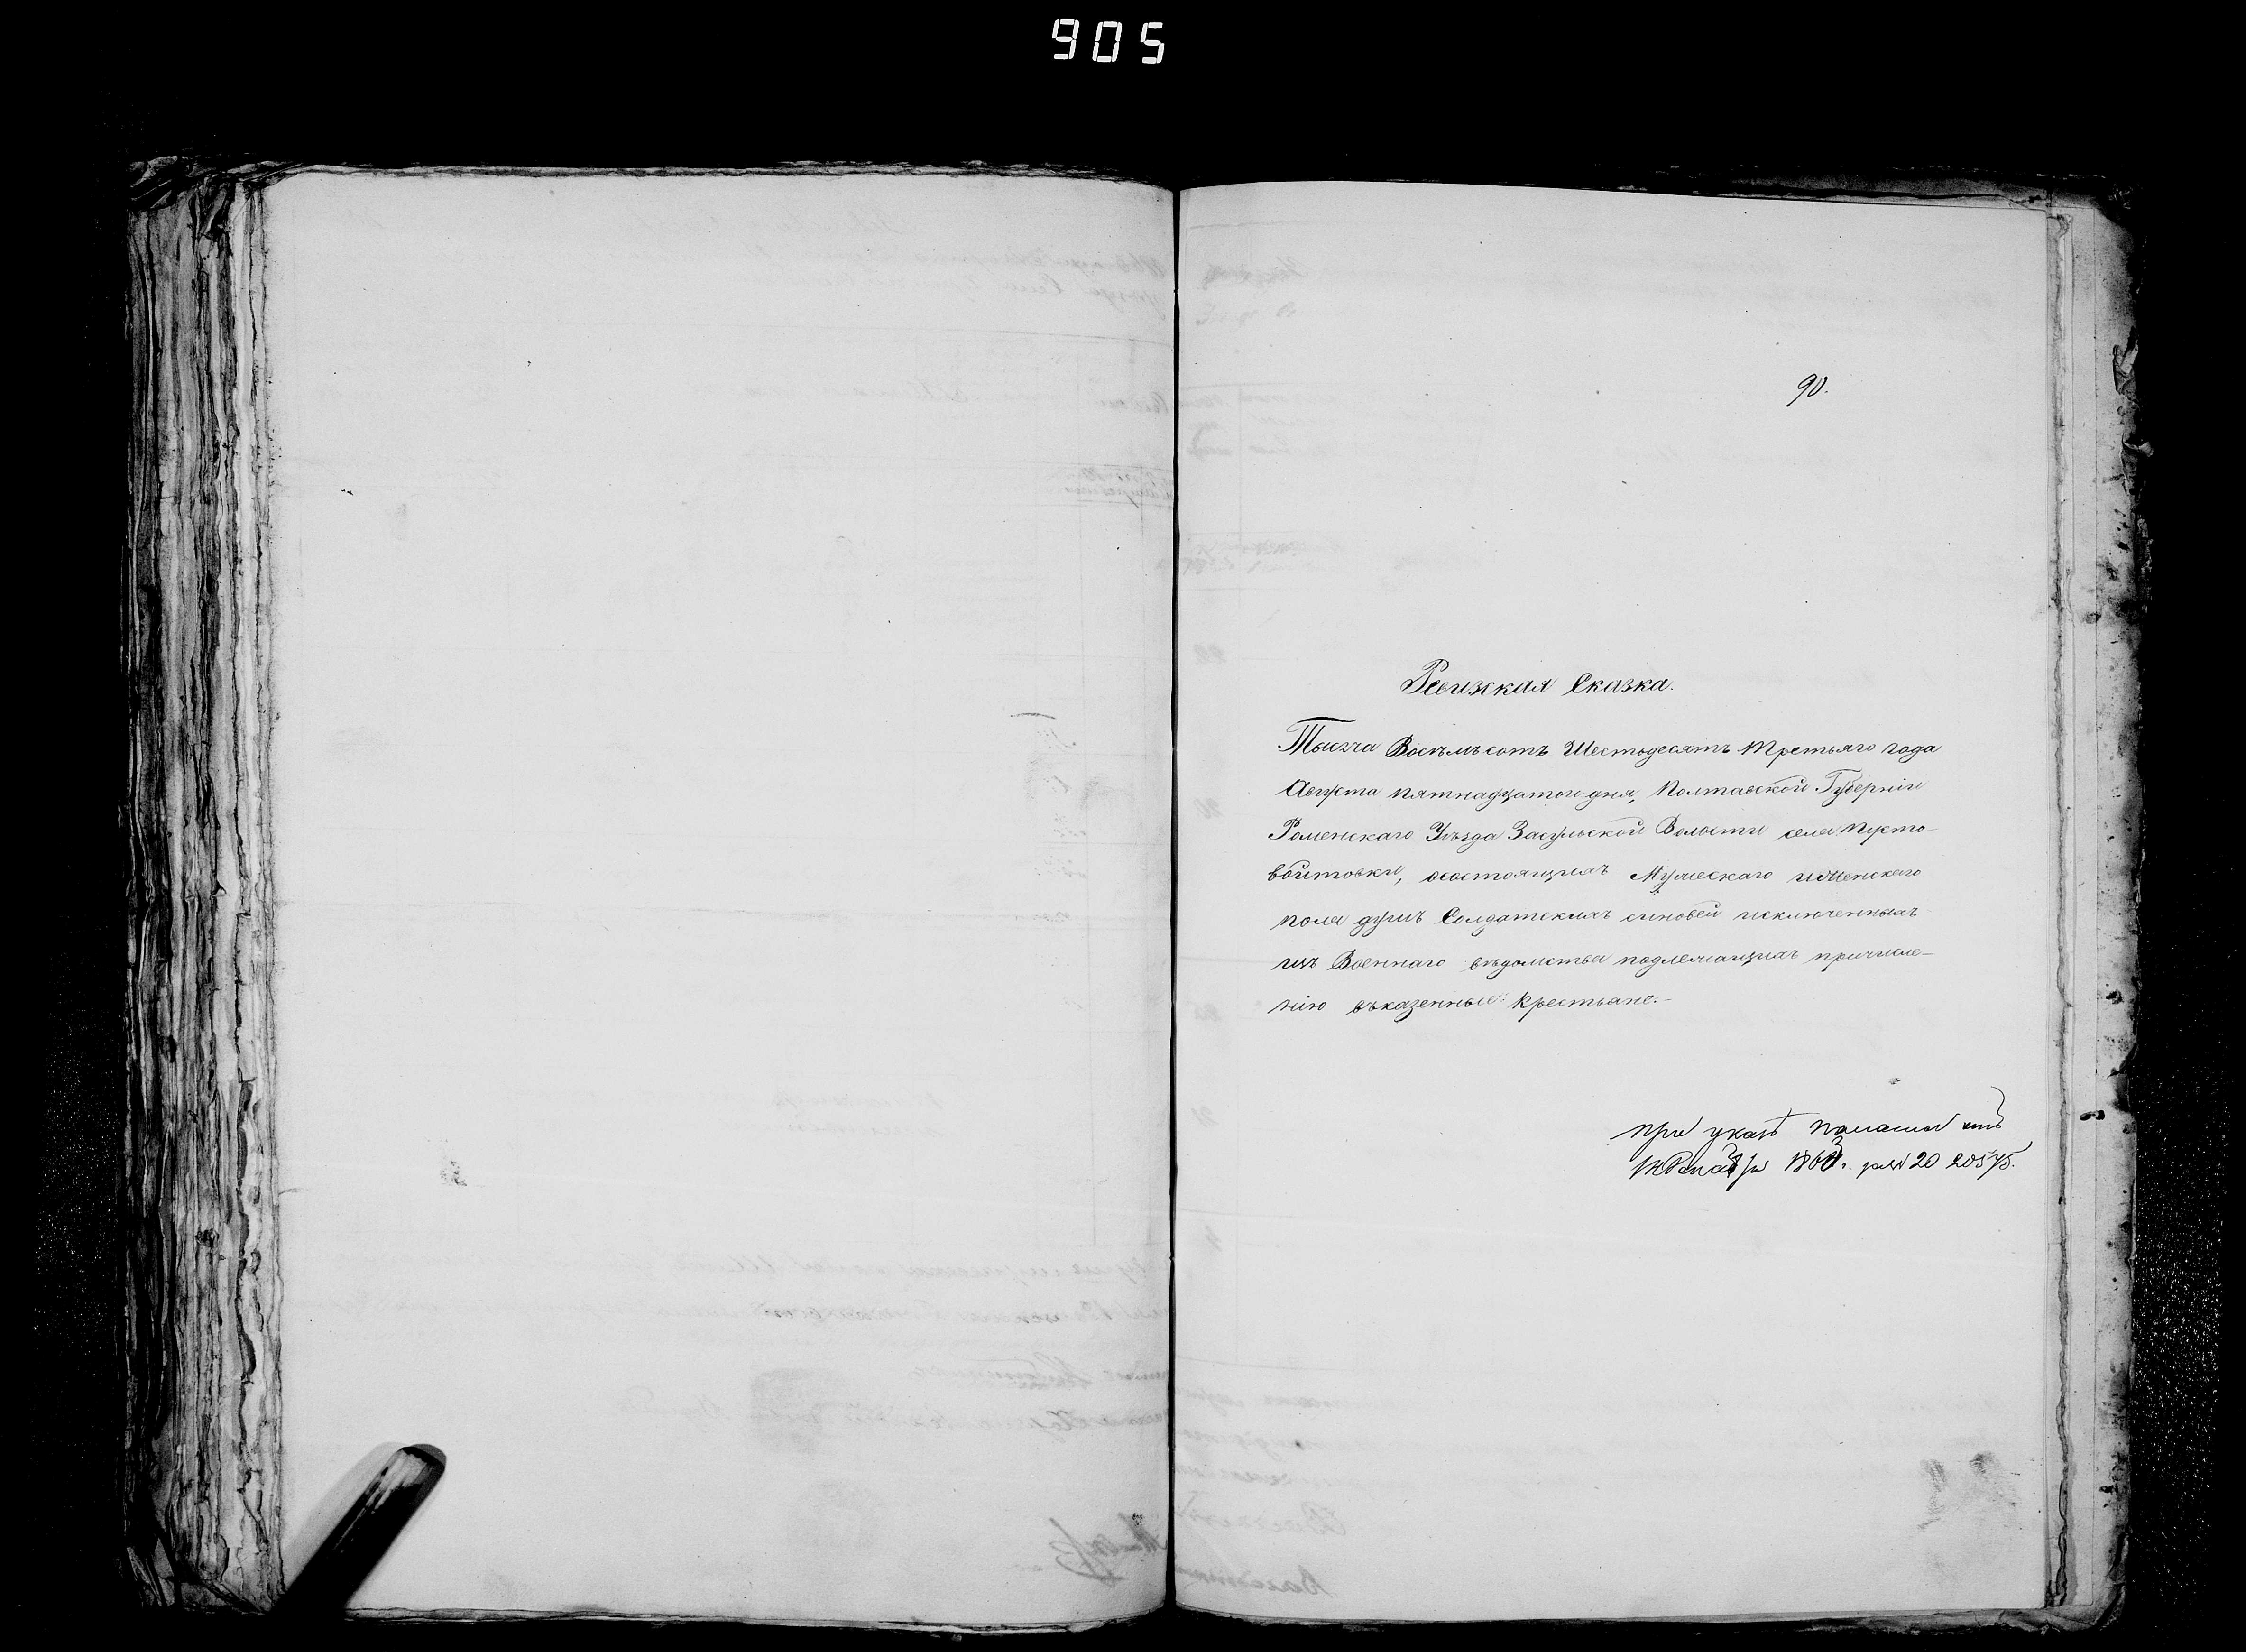 905
90.
Ревизская Сказка.
Тысяча Восемьсотъ Шестьдесятъ третьяго года
Августа пятнадцатого дня, Полтавской Губерніи
Роменскаго Уѣзда Засульской Волости села Пусто-
войтовки, осостоящихъ Мужескаго иЖенскаго
пола душъ Солдатскихъ синовей исключенныхъ
изъ Военнаго вѣдомства подлежащихъ причисле-
нію въказенные Крестьяне.-
при указѣ Палаты отъ
1863 г. за № 20